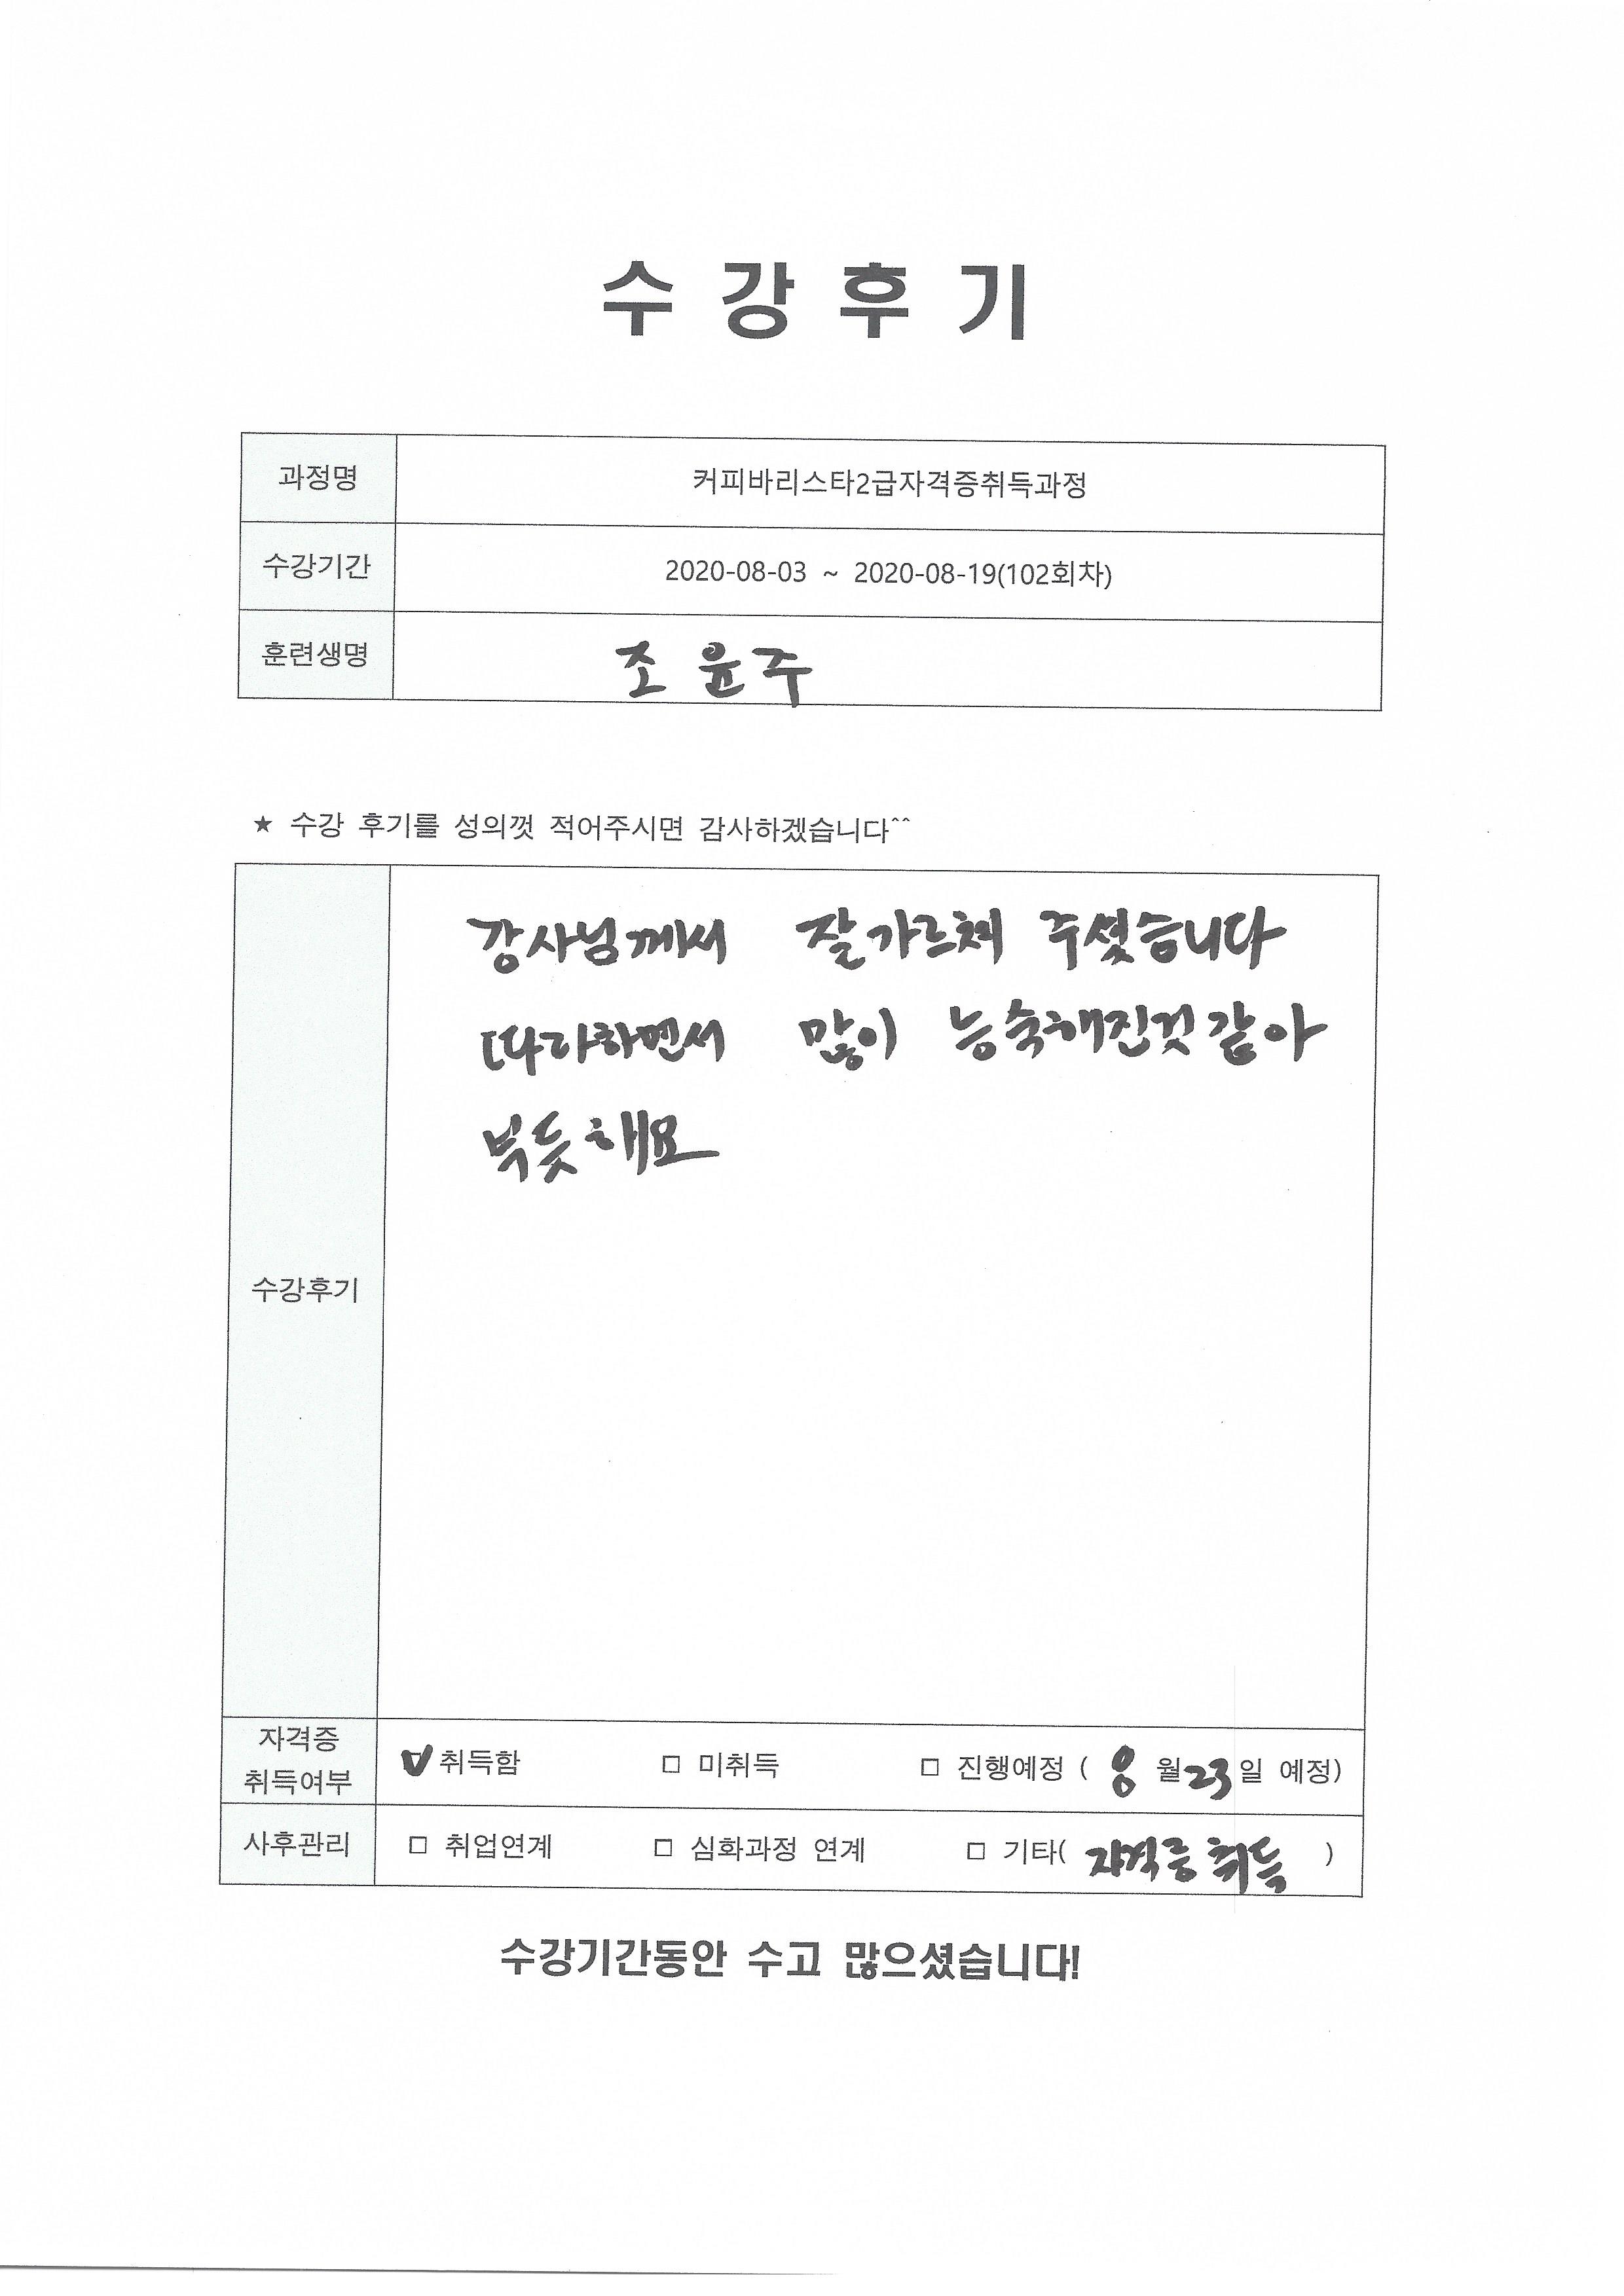 수 강 후 기
과정명 커피바리스타2급자격증취득과정
수강기간 2020-08-03 ~ 2020-08-19(102회차)
훈련생명 조윤주
★ 수강 후기를 성의껏 적어주시면 감사하겠습니다^^
강사님께서 잘가르쳐 주셨습니다
따라하면서 많이 능숙해진것같아
뿌듯해요
수강후기
자격증
취득여부
☑ 취득함 □ 미취득 □ 진행예정 ( 8 월 23 일 예정)
사후관리 □ 취업연계 □ 심화과정 연계 □ 기타( 자격증취득 )
수강기간동안 수고 많으셨습니다!